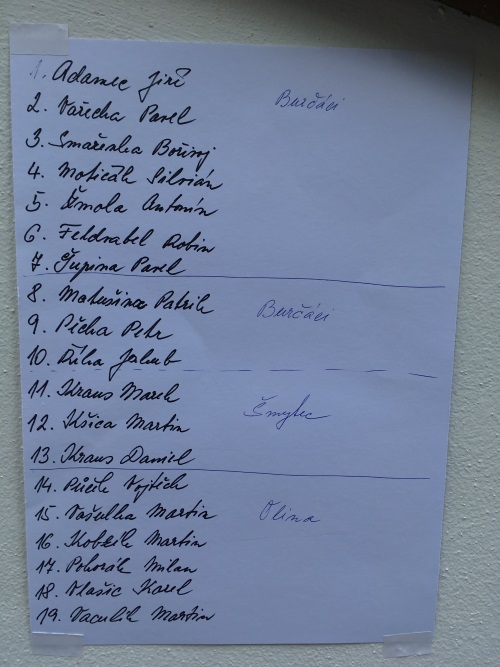 1. Adamec Jiří
Burčáci
2. Vařecha Pavel
3. Smaženka Bořivoj
4. Moticák Silvián
5. Žmola Antonín
6. Feldvabel Robin
7. Čupina Pavel
8. Matušina Patrik
Burčáci
9. Pícha Petr
10. Říha Jakub
11. Kraus Marek
Šmytec
12. Kšica Martin
13. Kraus Daniel
14. Vojtěch
15. Vašulka Martin
Olina
16. Kobzík Martin
17. Pohorák Milan
18. Vlašic Karel
19. Vaculík Martin